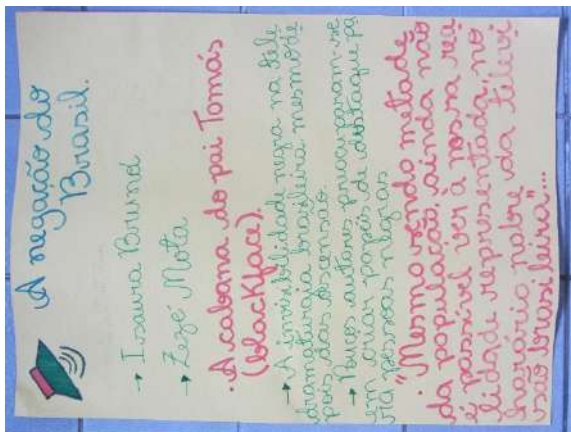 A negação do
Brasil.
→ Isaura Bruno
→ Zezé Mota
· A cabana do pai Tomás
(blackface).
→ A invisibilidade negra na tele
dramaturgia brasileira mesmo de
pois das descensão.
→ Poucos autores procuparam-se
em criar papéis de destaque pa
ra pessoas negras
· "Mesmo sendo metade
da população, ainda não
é possível ver à nossa rea
lidade representada, no
horário nobre da televi
são brasileira"...